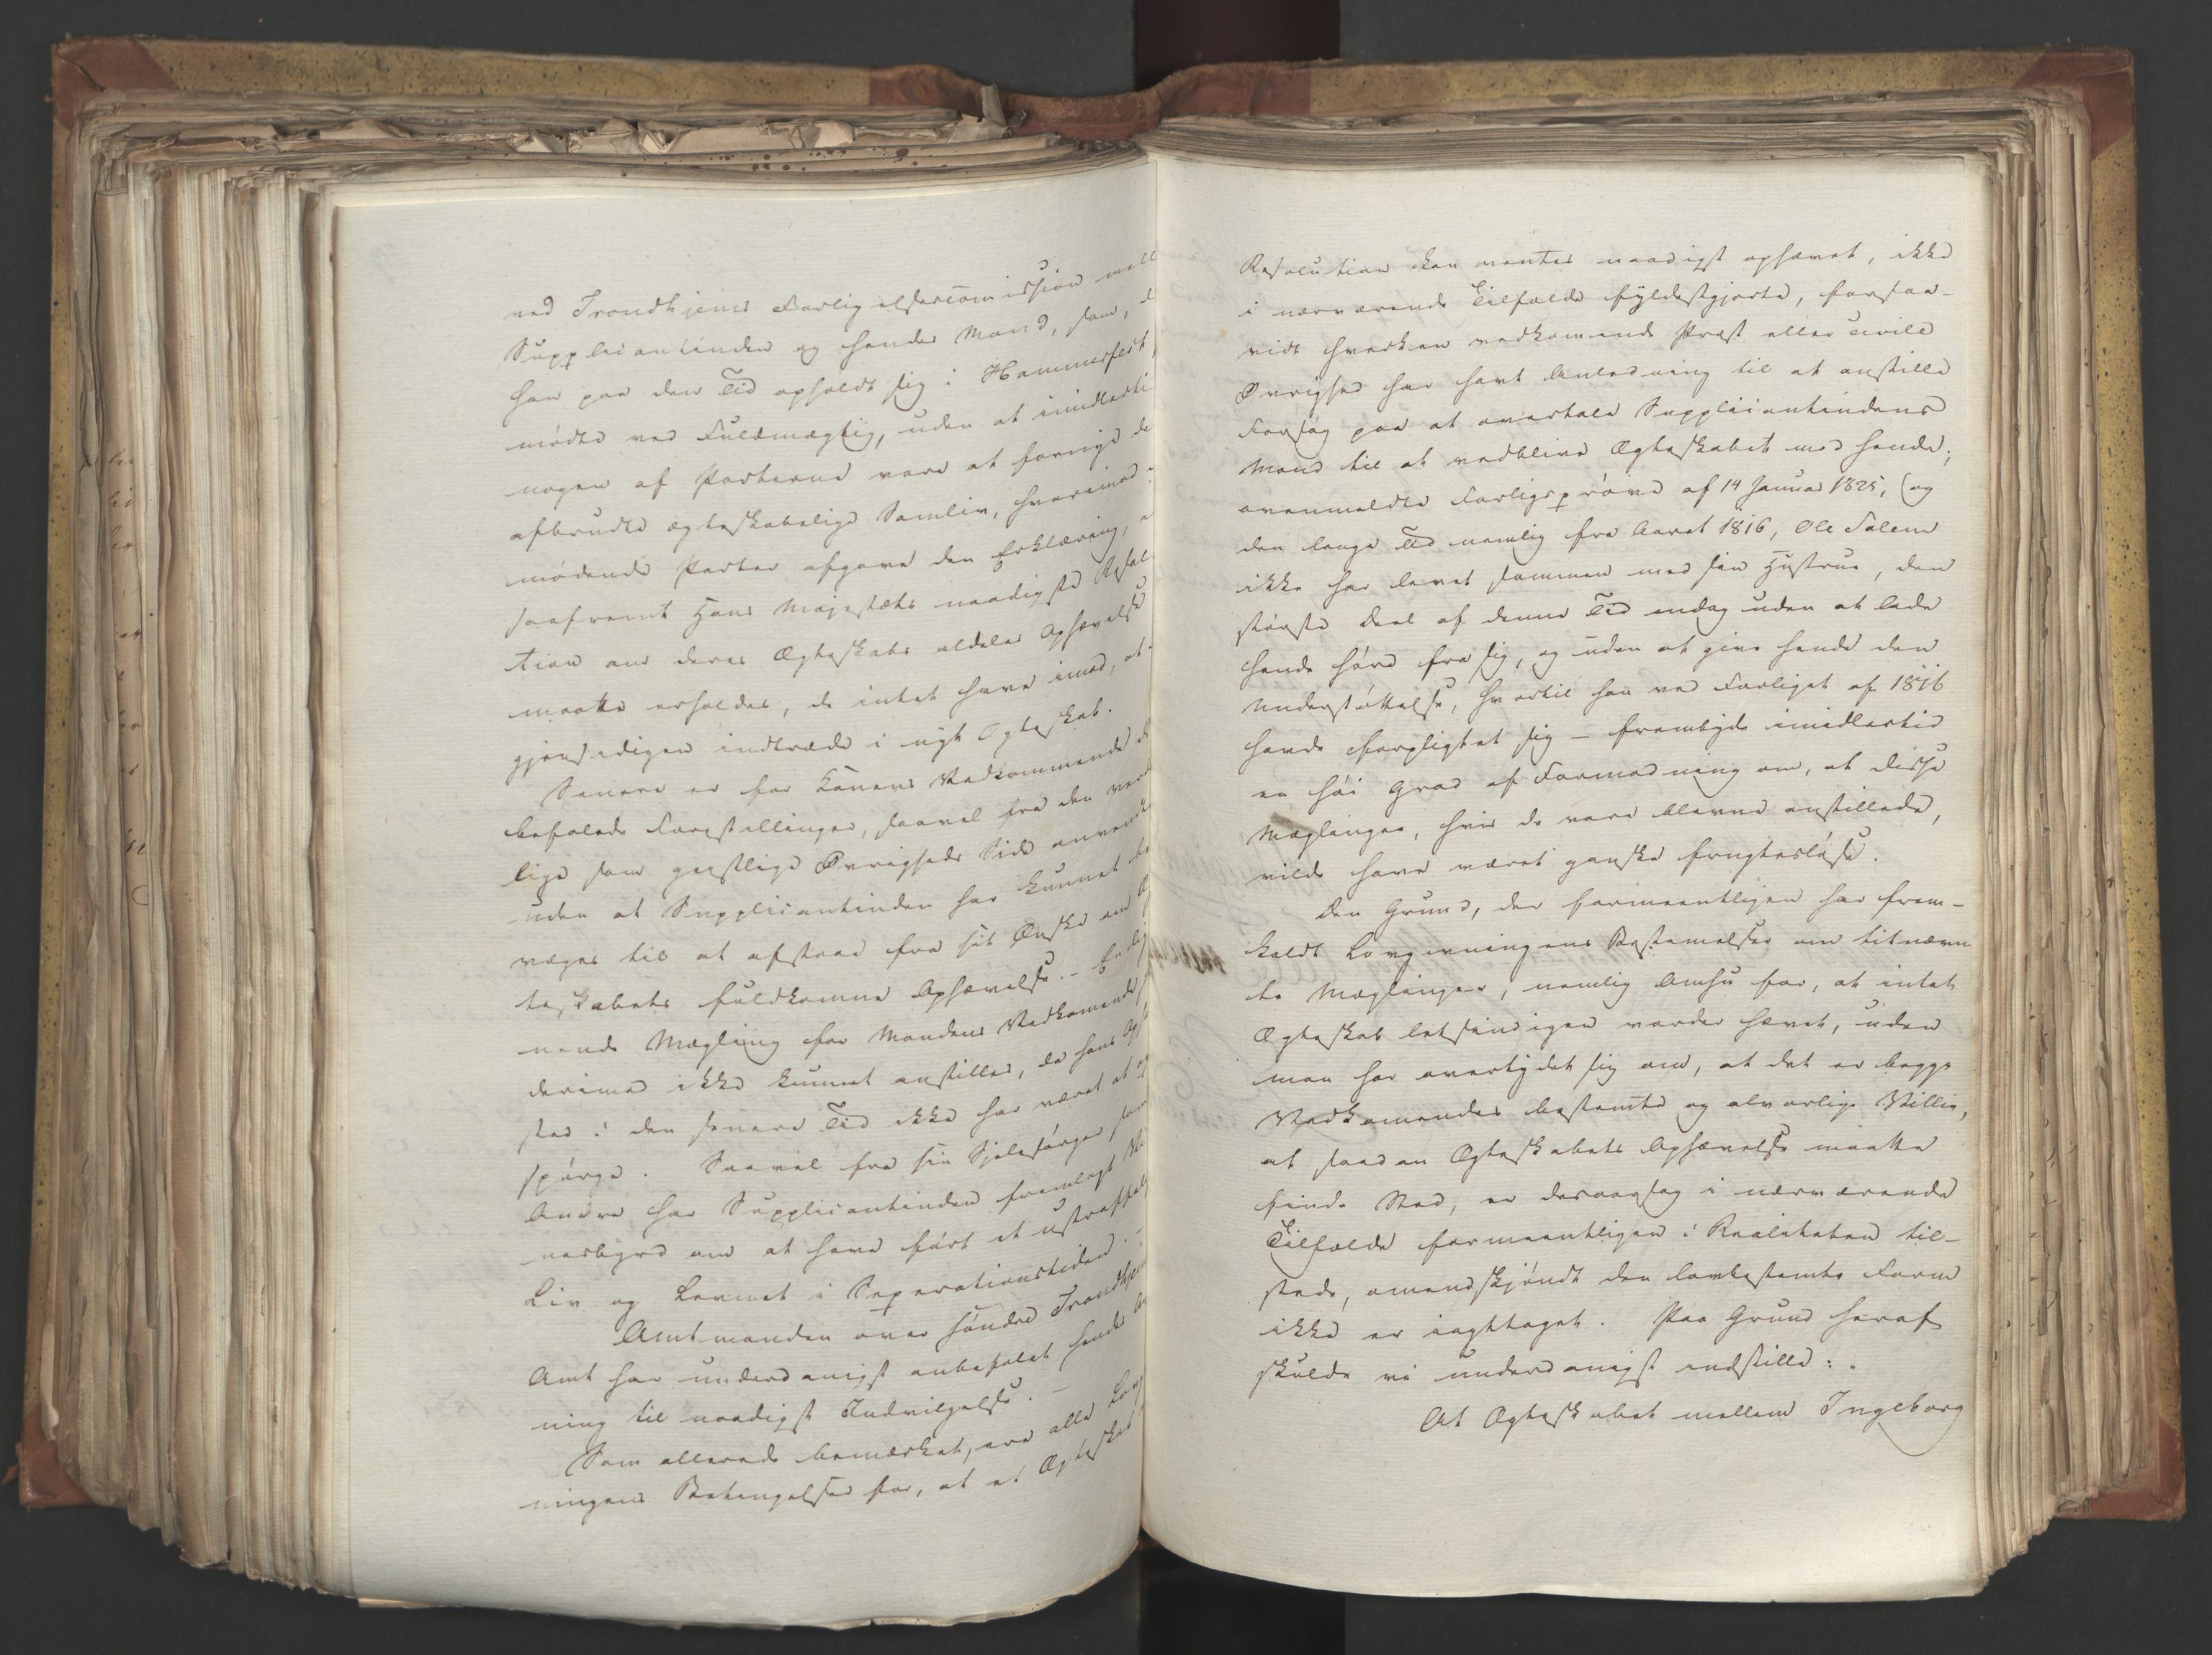 ved Trondhjems Forligelsescomission mell
Supplicantinden og hendes Mand, som, d
han paa den Tid opholdt sig i Hammerfest,
mödte ved Fuldmægtig, uden at imidlerti
nogen af Parterne vare at formaae de
afbrudte ægteskabelige Samliv, hvorimod
mödende Parter afgave den Erklæring, a
saafremt Hans Majestæts naadigste Resol
tion om deres Ægteskabs aldeles Ophævelse
maatte erholdes, de intet have imod, at
gjensidigen indtræde i nyt Ægteskab.
Senere er for Konens Vedkommende d
befalede Forestillinger, saavel fra den verd
lige som geistlige Øvrigheds Side anvendt
uden at Supplicantinden har kunnet be
væges til at afstaae fra sit Ønske om Æg
teskabets fuldkomne Ophævelse. –
nende Mægling for Mandens Vedkomende
derimod ikke kunnet anstilles, da hans Opho
sted i den senere Tid ikke har været at op
spörge. Saavel fra sin Sjelesörger som
Andre har Supplicantinden fremlagt Vid
nesbyrd om at have fört et ustraffel
Liv og Levnet i Separationstiden. –
Amtmanden over söndre Trondhjems
Amt har underdanigst anbefalet hendes An
ning til naadigst Indvilgelse. –
Som allerede bemærket, ere alle Lovg
ningens Betingelser for, at et Ægteskab
Resolution kan ventes naadigst ophævet, ikke
i nærværende Tilfælde fyldestgjorte, forsaa-
vidt hverken vedkomende Præst eller civile
Øvrighed har havt Anledning til at anstille
Forsög paa at overtale Supplicantindens
Mand til at vedblive Ægteskabet med hende;
ovenmeldte Forligspröve af 14 Januar 1825, (og
den lange Tid nemlig fra Aaret 1816, Ole Solem
ikke har levet sammen med sin Hustrue, den
störste Deel af denne Tid endog uden at lade
hende höre fra sig, og uden at give hende den
Understöttelse, hvortil han ved Forliget af 1816
havde forpligtet sig – frembyde imidlertid
en höi Grad af Formodning om, at disse
Mæglinger, hvis de vare blevne anstillede,
vilde have været ganske frugteslöse.
Den Grund, der formeentligen har frem-
kaldt Lovgivningens Bestemelser om titnævn
te Mæglinger, nemlig Omhu for, at intet
Ægteskab letsindigen vorder hævet, uden
man har overtydet sig om, at det er begge
Vedkomendes bestemte og alvorlige Villie,
at saadan Ægteskabets Ophævelse maatte
finde Sted, er desaarsag i nærværende
Tilfælde formeentligen i Realiteten til-
stede, omendskjöndt den lovbestemte Form
ikke er iagttaget. Paa Grund heraf
skulde vi underdanigst indstille:
At Ægteskabet mellem Ingeborg